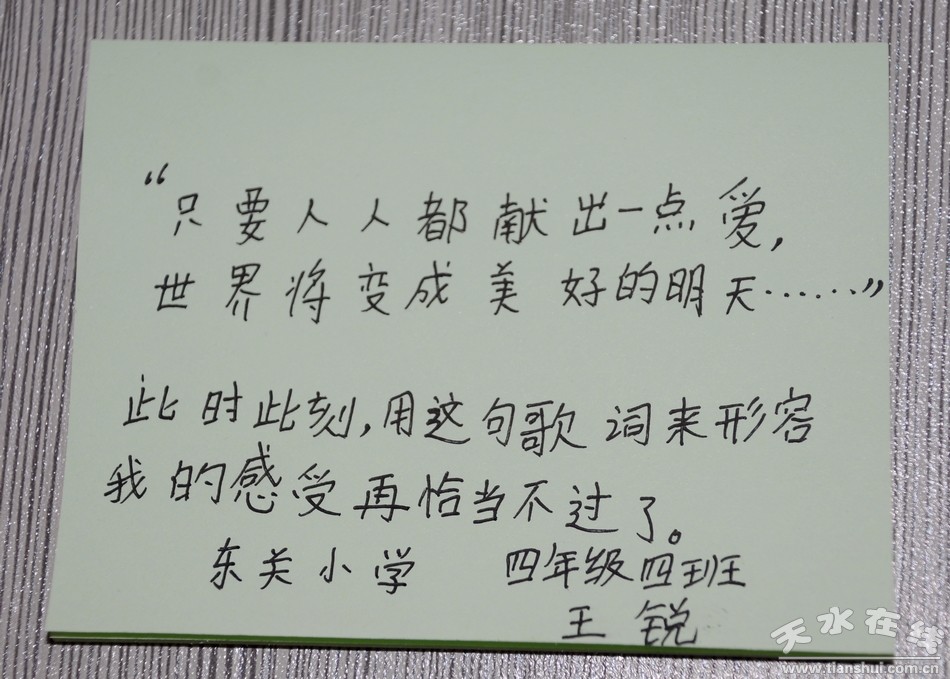 “只要人人都献出一点爱，
世界将变成美好的明天……”
此时此刻，用这句歌词来形容
我的感受再恰当不过了。
东关小学 四年级四班
王锐
天水在线
www.tianshui.com.cn